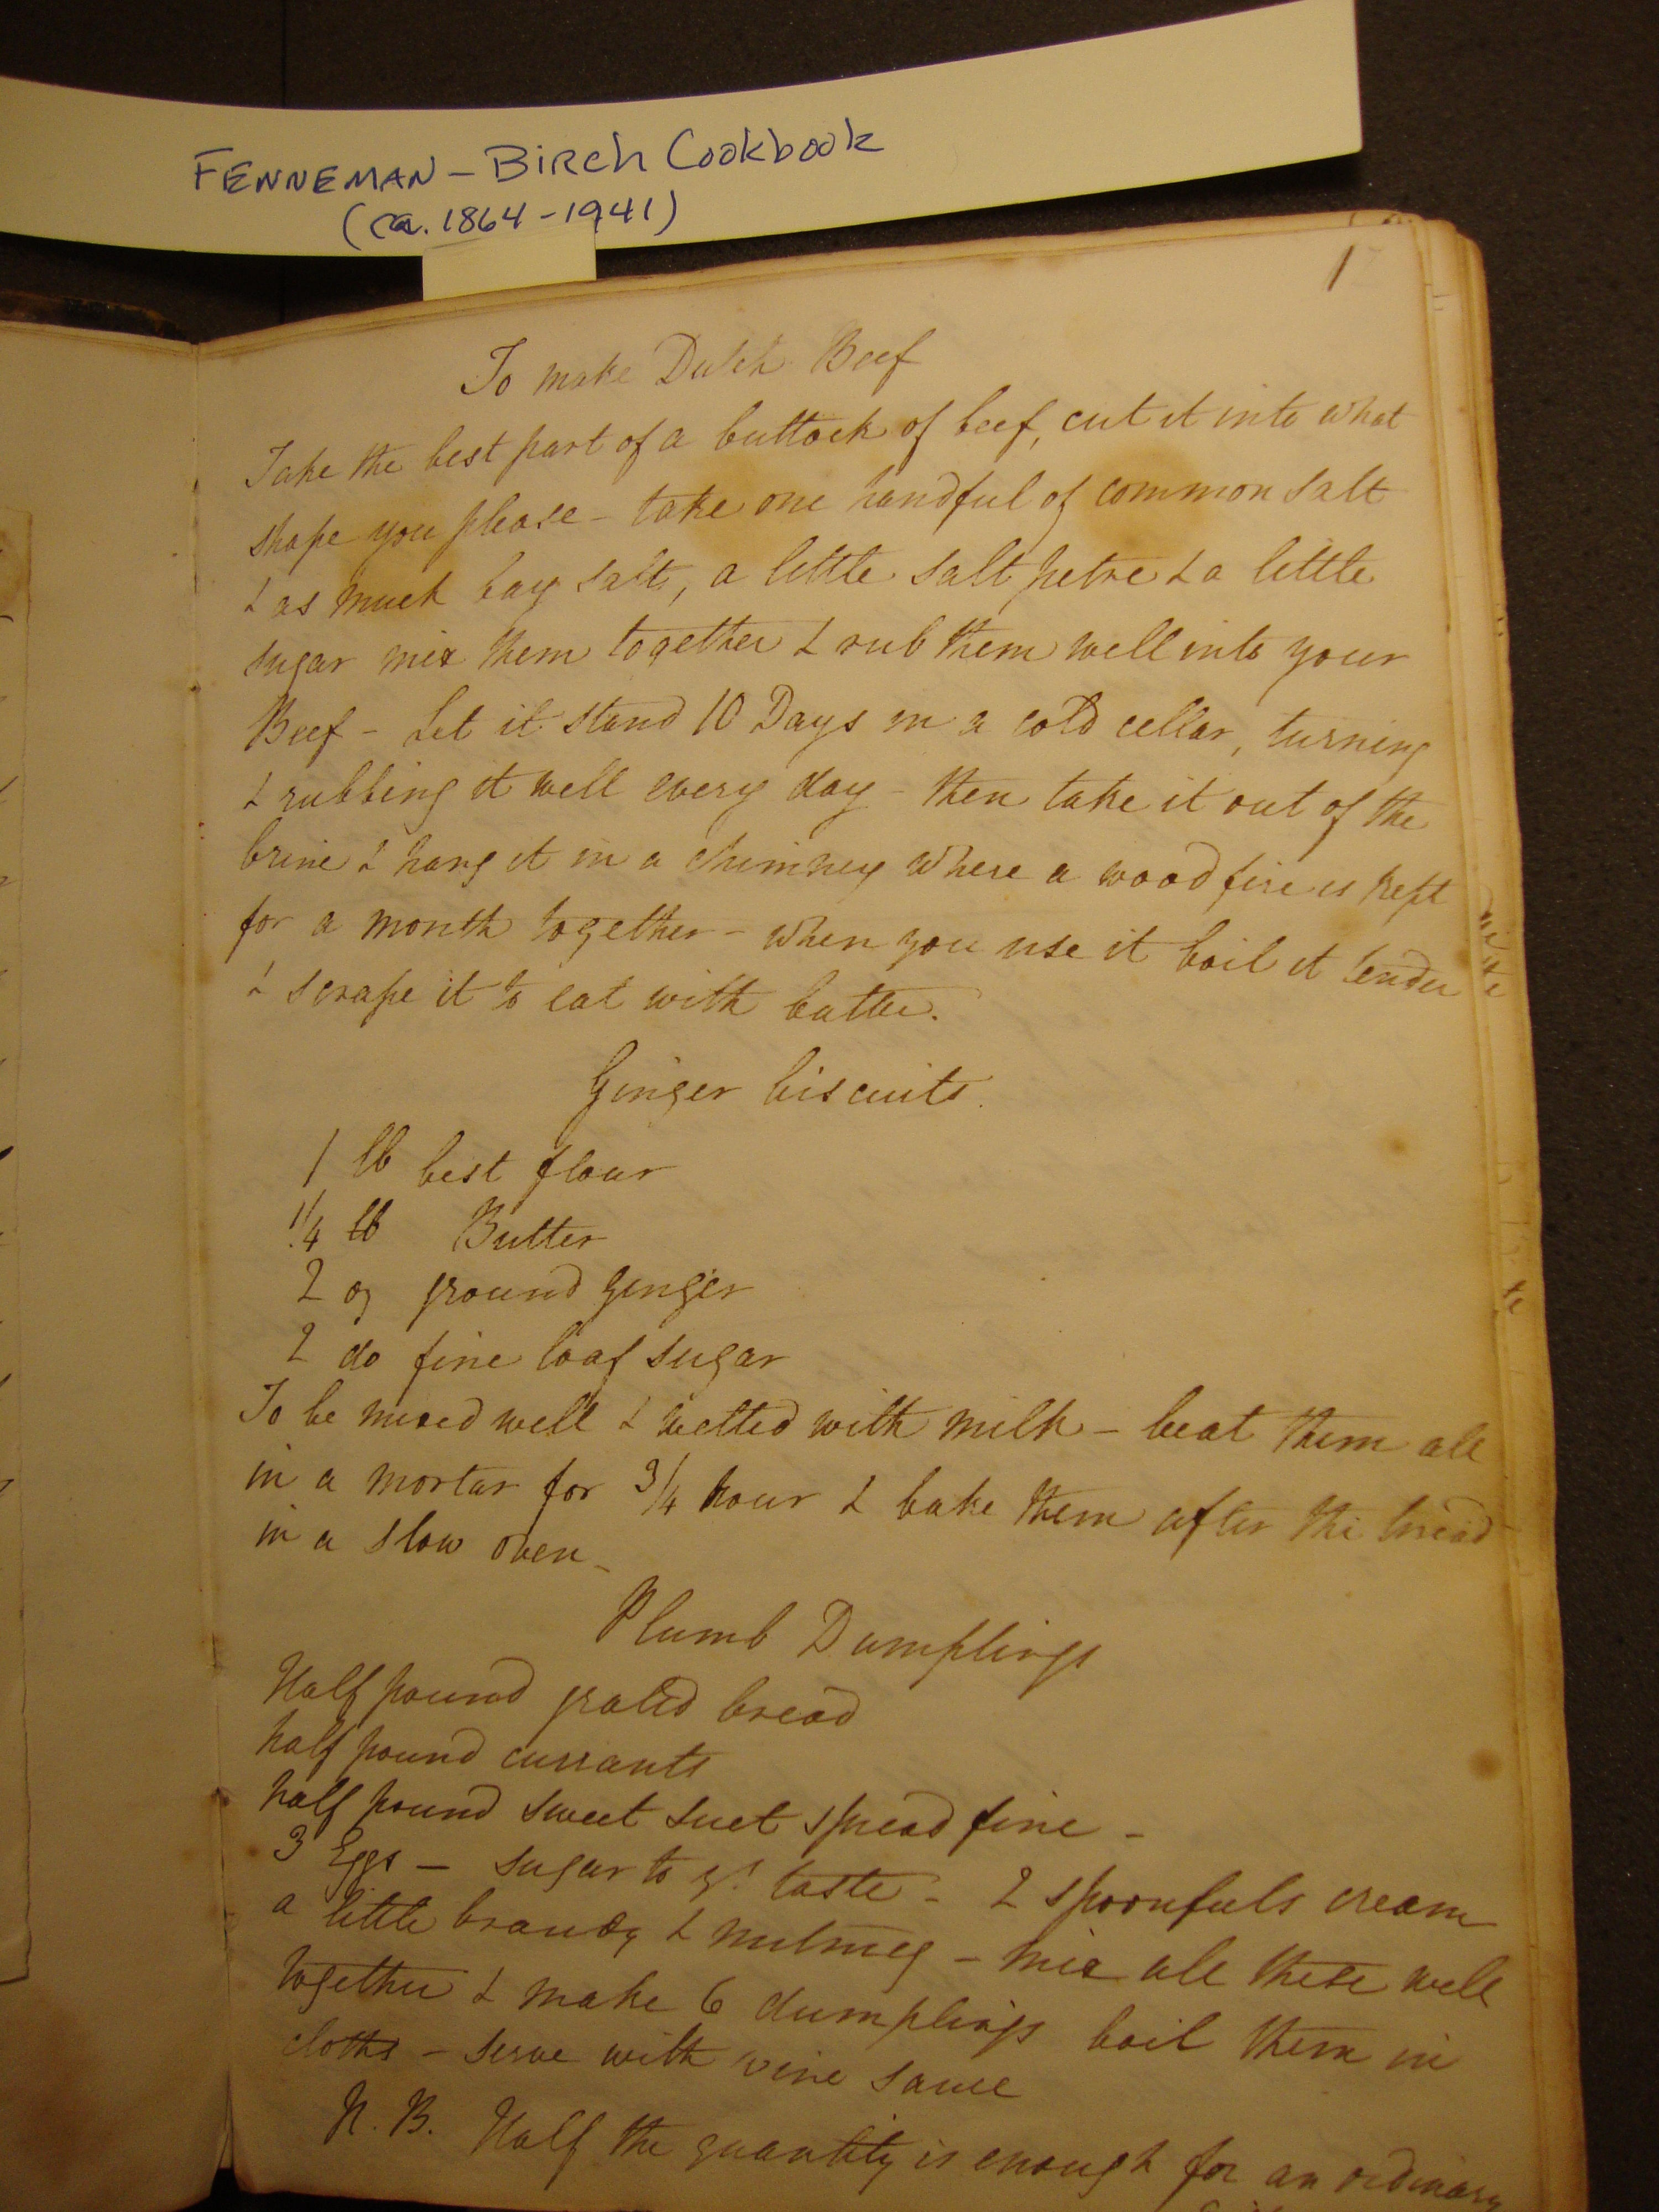 FENNEMAN - Birch Cookbook
(ca. 1864-1941)
1
To make Dutch Beef
Take the best part of a buttock of beef, cut it into what
shape you please - take one handful of common salt
& as much bay salt, a little salt petre & a little
sugar mix them together & rub them well into your
Beef - Let it stand 10 Days in a cold cellar, turning
& rubbing it well every day - then take it out of the
brine & hang it in a chimney where a wood fire is kept
for a month together - when you use it boil it tender
& scrape it to eat with butter.
Ginger biscuits.
1 lb best flour
1/4 lb Butter
2 oz ground ginger
2 do fine loaf sugar
To be mixed well & wetted with milk - beat them all
in a mortar for 3/4 hour & bake them after the bread
in a slow oven -
Plumb Dumplings
Half pound grated bread
half pound currants
half pound sweet suet shread fine -
3 Eggs - sugar to yr. taste - 2 spoonfuls cream
a little brandy & nutmeg - mix all these well
together & make 6 dumplings boil them in
cloths - serve with wine sauce
N.B. Half the quantity is enough for an ordinary